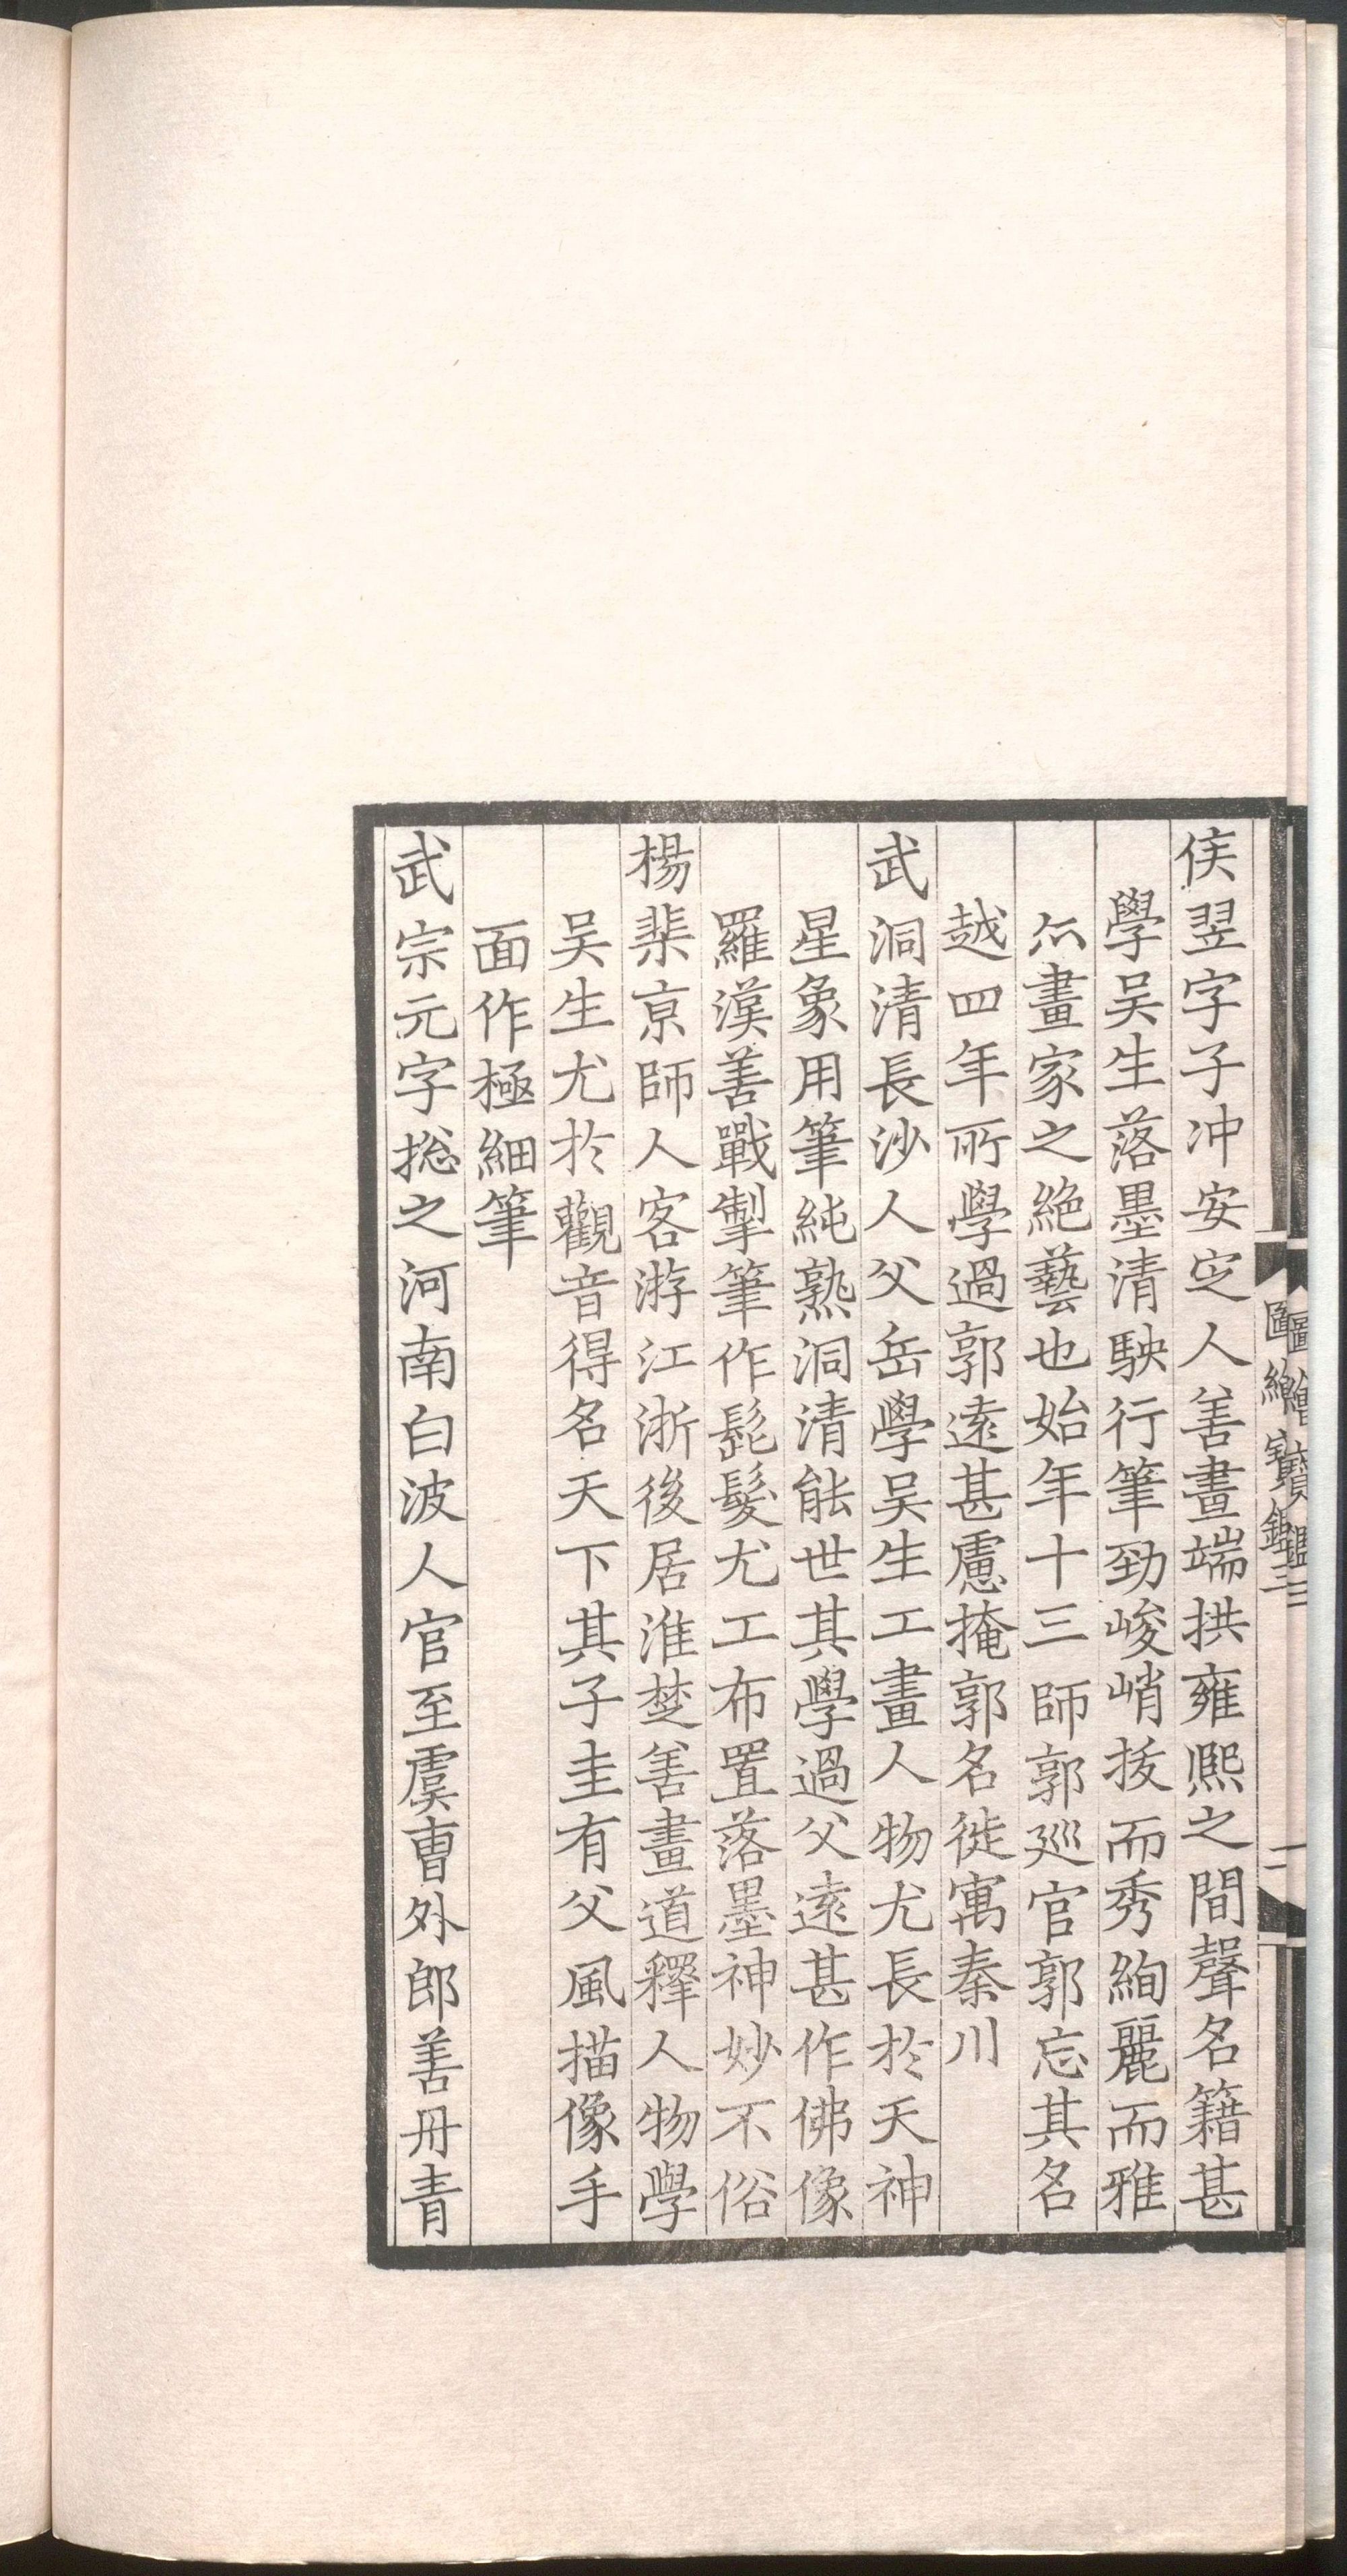 侯翌字子冲安定人善畫端拱雍熙之間聲名籍甚
學吴生落墨清駛行筆勁峻峭拔而秀絢麗而雅
亦畫家之絶藝也始年十三師郭巡官郭忘其名
越四年所學過郭遠甚慮掩郭名徙寓秦川
武洞清長沙人父岳學吴生工畫人物尤長於天神
星象用筆純熟洞清能世其學過父遠甚作佛像
羅漢善戰掣筆作髭髮尤工布置落墨神妙不俗
楊棐京師人客游江浙後居淮楚善畫道釋人物學
吴生尤於觀音得名天下其子圭有父風描像手
面作極細筆
武宗元字捴之河南白波人官至虞曹外郎善丹青
圖繪寶鑑三